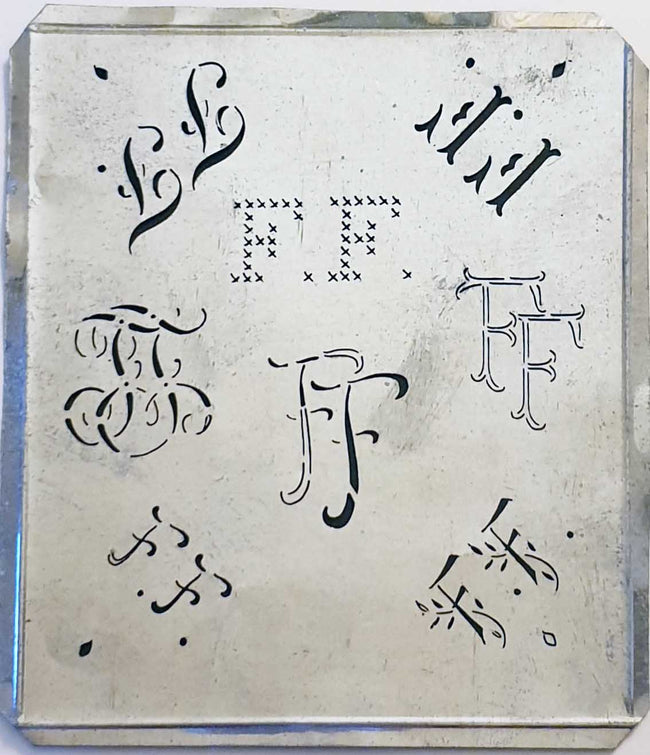 F F
F F
F. F.
F F
F F
F F
F. F.
F. F.